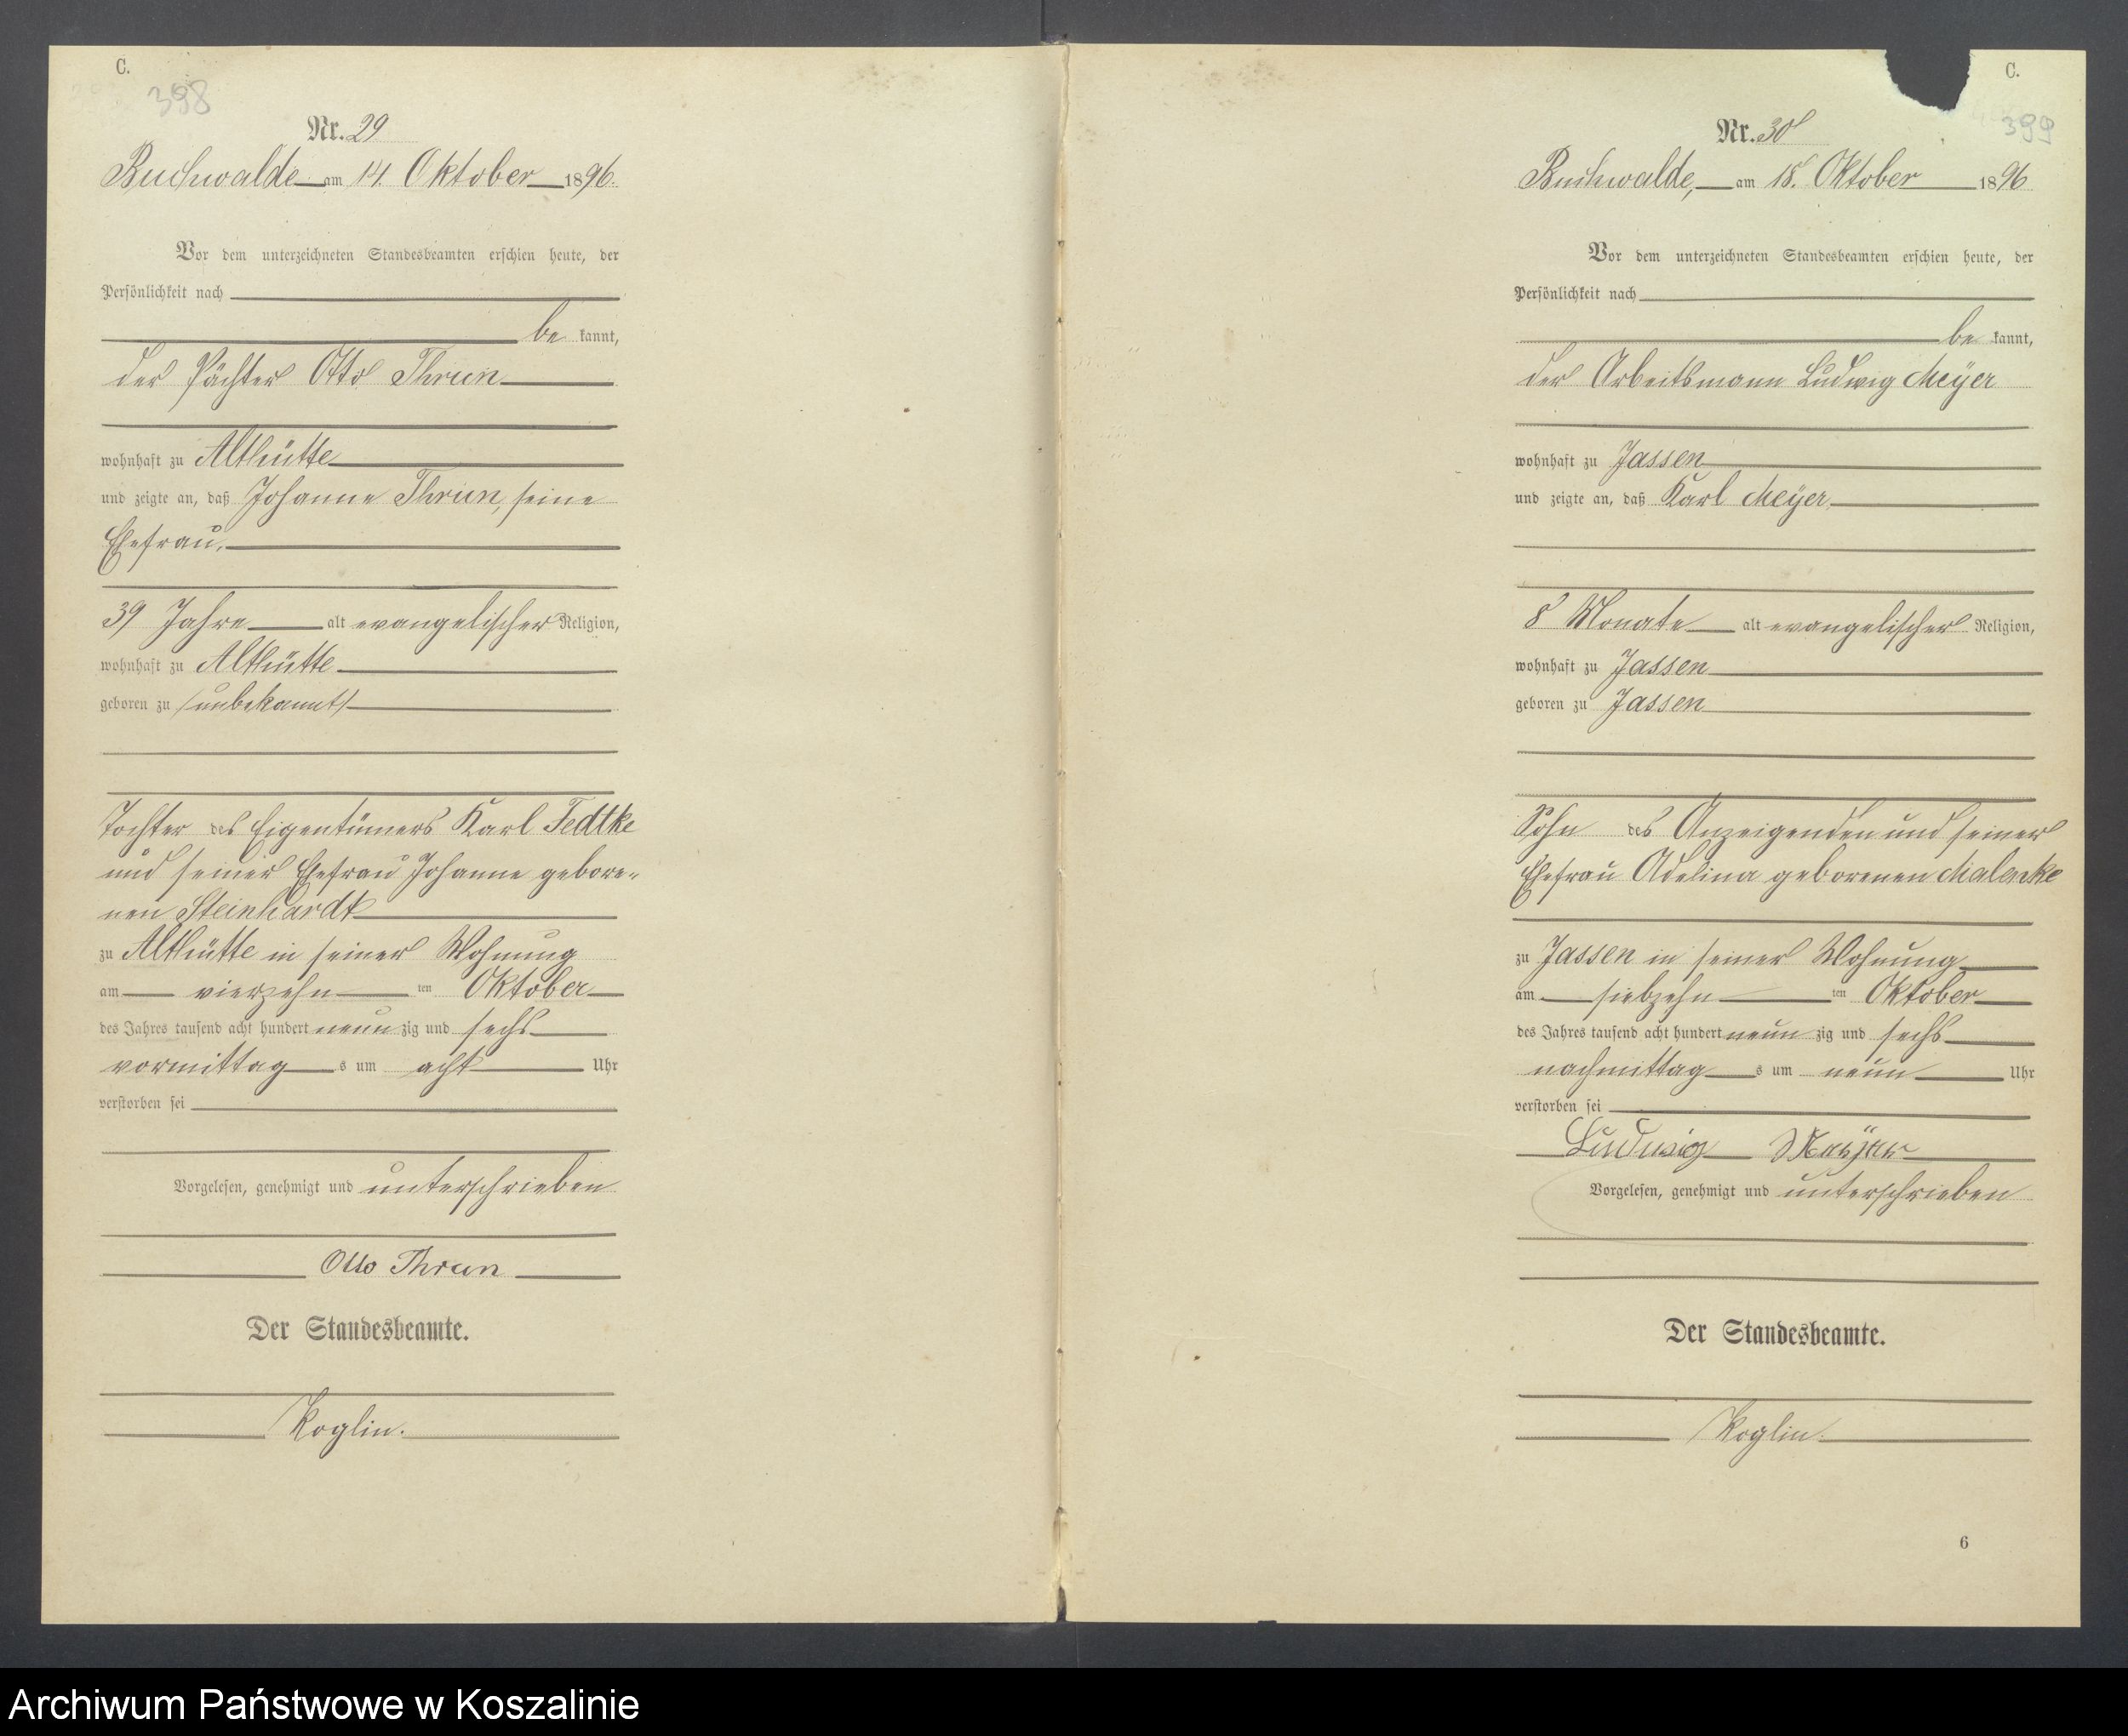 C.
398
Nr. 29
Buchwalde am 14. Oktober 1896.
Vor dem unterzeichneten Standesbeamten erschien heute, der
Persönlichkeit nach
be kannt,
der Pächter Otto Thrun
wohnhaft zu Althütte
und zeigte an, daß Johanne Thrun, seine
Ehefrau,
39 Jahre alt evangelischer Religion,
wohnhaft zu Althütte
geboren zu /unbekannt/
Tochter des Eigentümers Karl Tedtke
und seiner Ehefrau Johanne gebore-
nen Steinhardt
zu Althütte in seiner Wohnung
am vierzehn ten Oktober
des Jahres tausend acht hundert neun zig und sechs
vormittag s um acht Uhr
verstorben sei
Vorgelesen, genehmigt und unterschrieben
Otto Thrun
Der Standesbeamte.
Koglin.
C.
399
Nr. 30
Buchwalde, am 18. Oktober 1896
Vor dem unterzeichneten Standesbeamten erschien heute, der
Persönlichkeit nach
be kannt,
der Arbeitsmann Ludwig Meÿer
wohnhaft zu Jassen
und zeigte an, daß Karl Meÿer,
8 Monate alt evangelischer Religion,
wohnhaft zu Jassen
geboren zu Jassen
Sohn des Anzeigenden und seiner
Ehefrau Adelina geborenen Malenke
zu Jassen in seiner Wohnung
am siebzehn ten Oktober
des Jahres tausend acht hundert neun zig und sechs
nachmittag s um neun Uhr
verstorben sei
Ludwig Meÿer
Vorgelesen, genehmigt und unterschrieben
Der Standesbeamte.
Koglin.
6
Archiwum Państwowe w Koszalinie